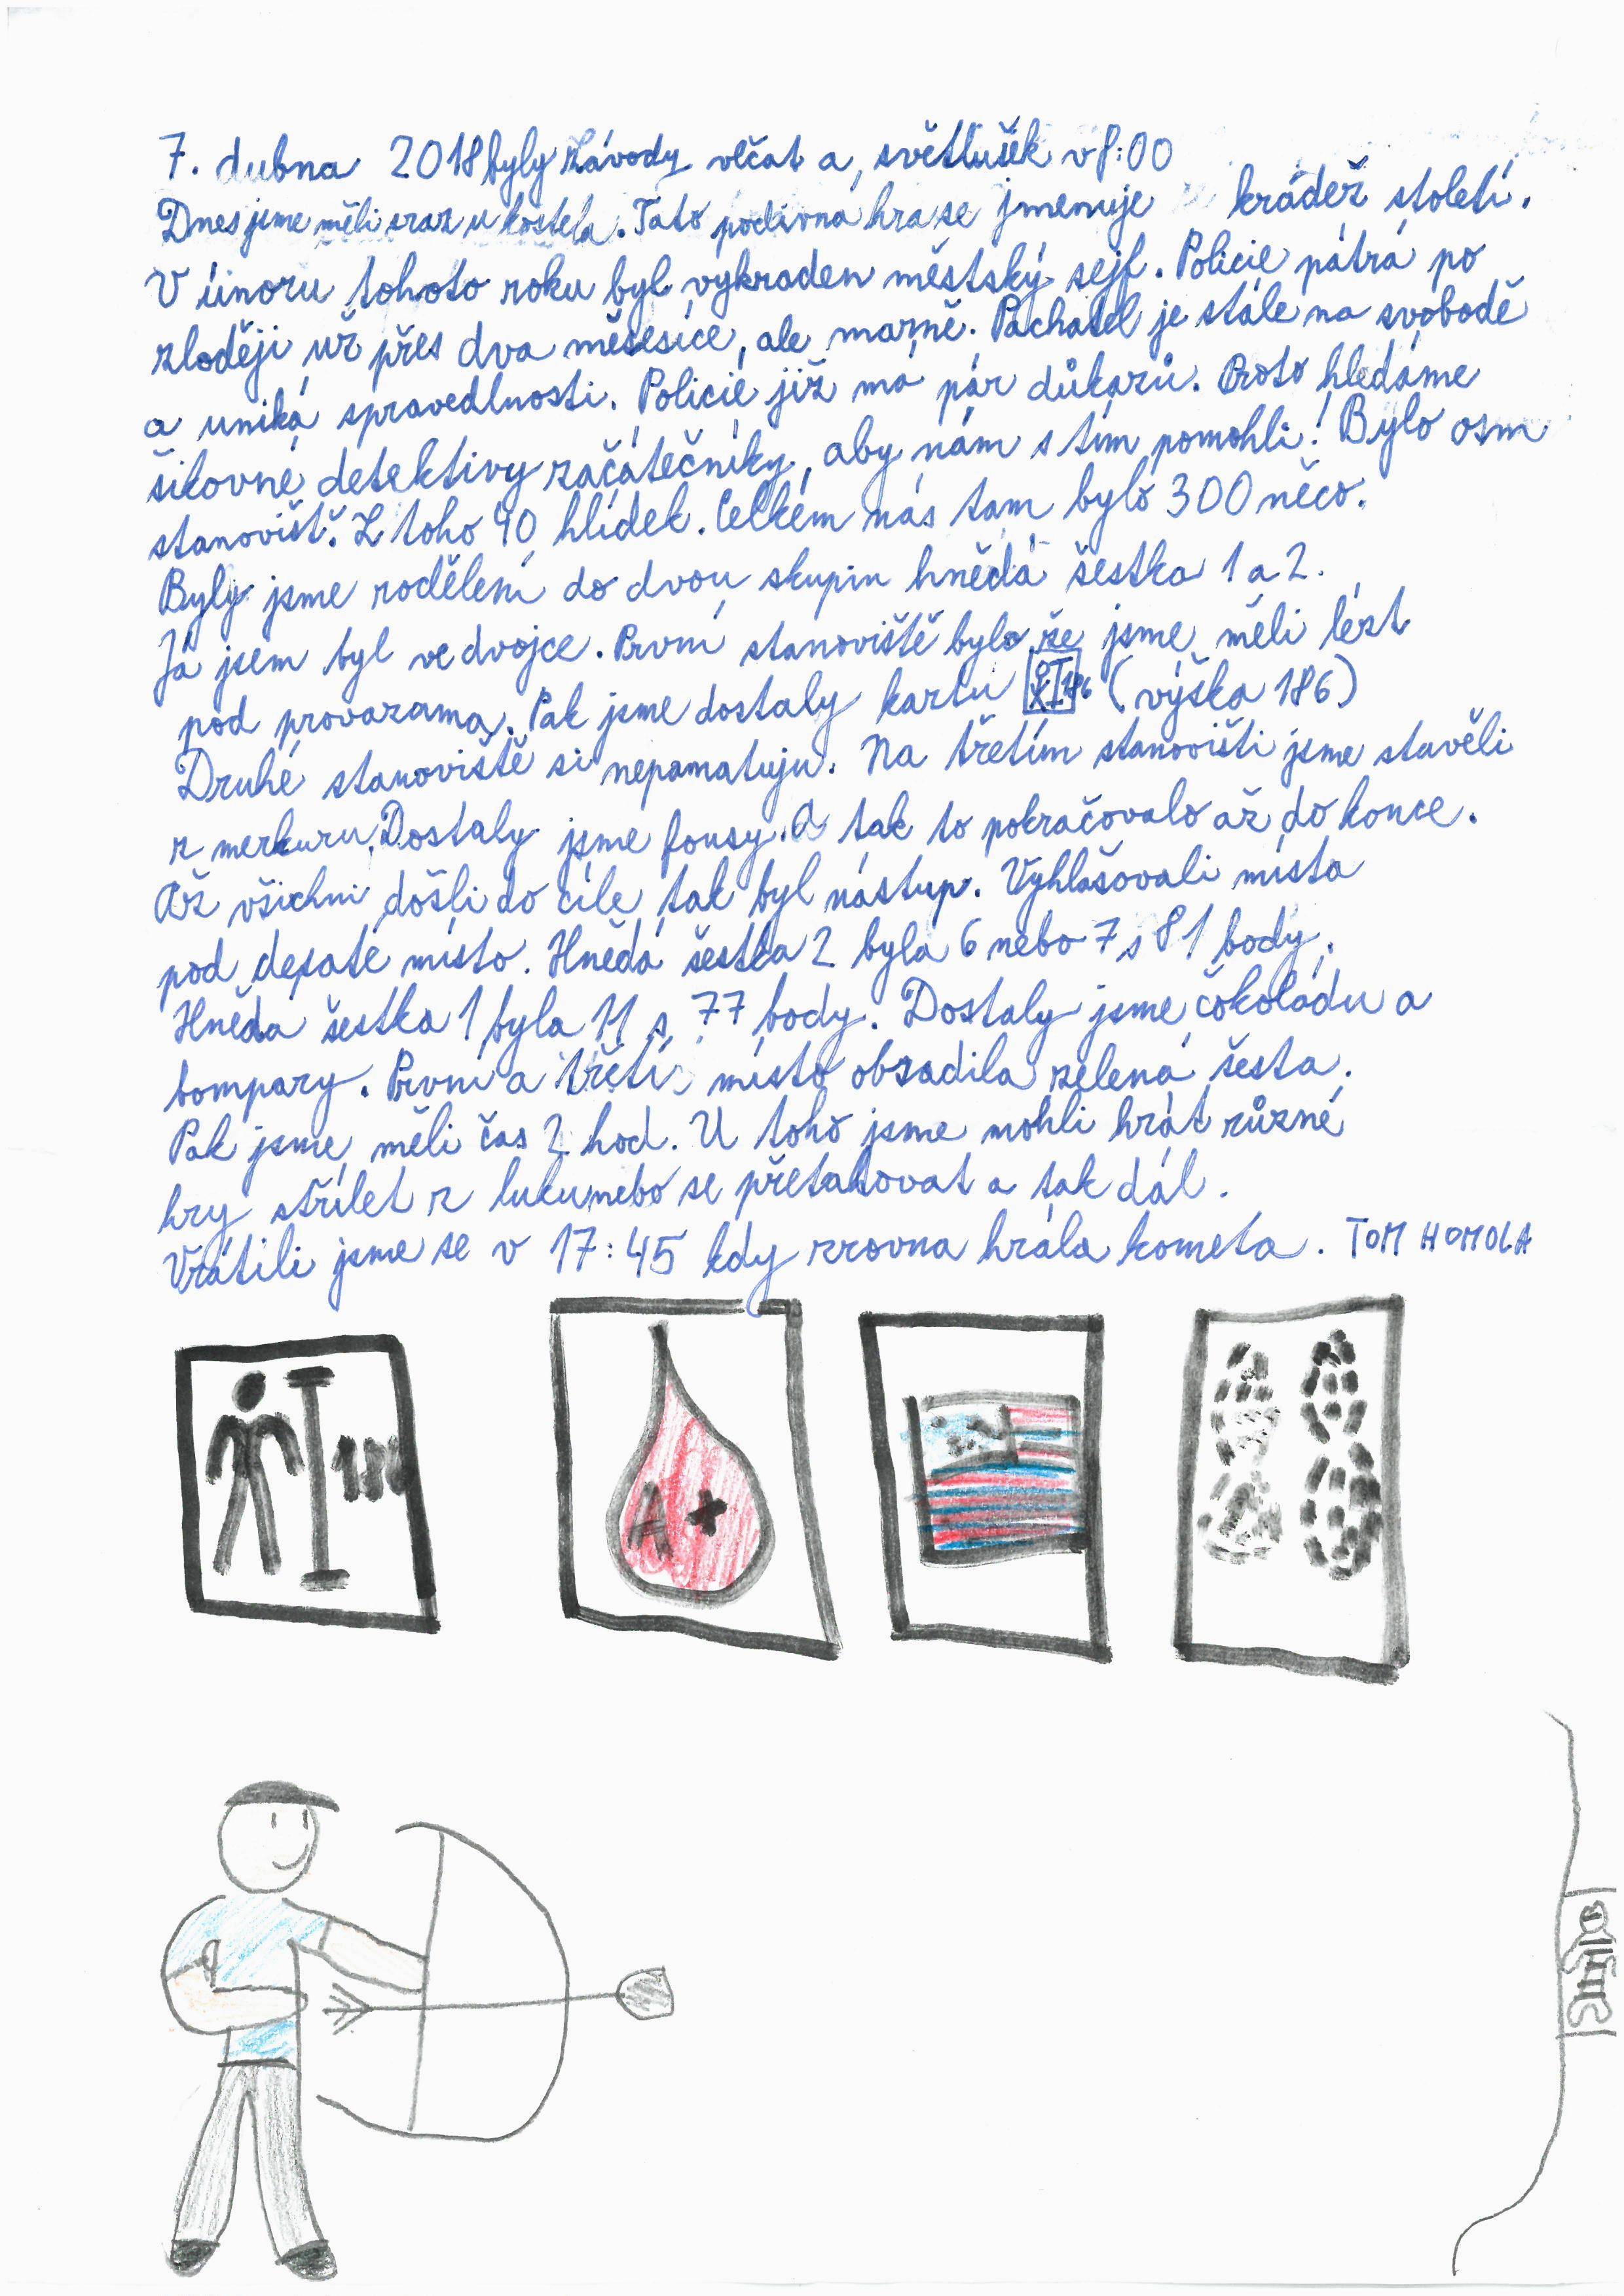 7. dubna 2018 byly závody vlčat a, světlušek v 8:00
Dnes jsme měli sraz u kostela. Tato podivná hra se jmenuje krádež století.
V únoru tohoto roku byl vykraden městský sejf. Policie pátrá po
zloději už přes dva měsesíce, ale marně. Pachatel je stále na svobodě
a uniká spravedlnosti. Policie již má pár důkazů. Proto hledáme
šikovné detektivy začátečníky, aby nám s tím pomohli! Bylo osm
stanovišť. Z toho 40 hlídek. Celkém nás tam bylo 300 něco.
Byly jsme rodělení do dvou skupin hnědá šestka 1 a 2.
Já jsem byl ve dvojce. První stanoviště bylo že jsme měli lézt
pod provazama. Pak jsme dostaly kartu 186 (výška 186)
Druhé stanoviště si nepamatuju. Na třetím stanovišti jsme stavěli
z merkuru. Dostaly jsme fousy. A tak to pokračovalo až do konce.
Až všichni došli do cíle tak byl nástup. Vyhlašovali místa
pod desáté místo. Hnědá šestka 2 byla 6 nebo 7 s 81 body.
Hnědá šestka 1 byla 11 s 77 body. Dostaly jsme čokoládu a
bompary. První a třetí místo obsadila zelená šesta.
Pak jsme měli čas 2 hod. U toho jsme mohli hrát různé
hry střílet z luku nebo se přetahovat a tak dál.
Vrátili jsme se v 17:45 kdy zrovna hrála kometa. TOM HOMOLA
186
A +